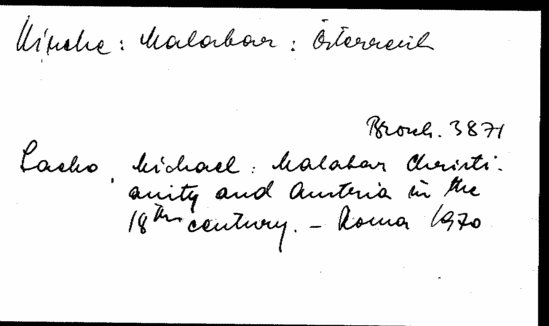 Kirche : Malabar : Österreich
Brosch. 3871
Lacko, Michael : Malabar Christi-
anity and Austria in the
18th century. – Roma 1970